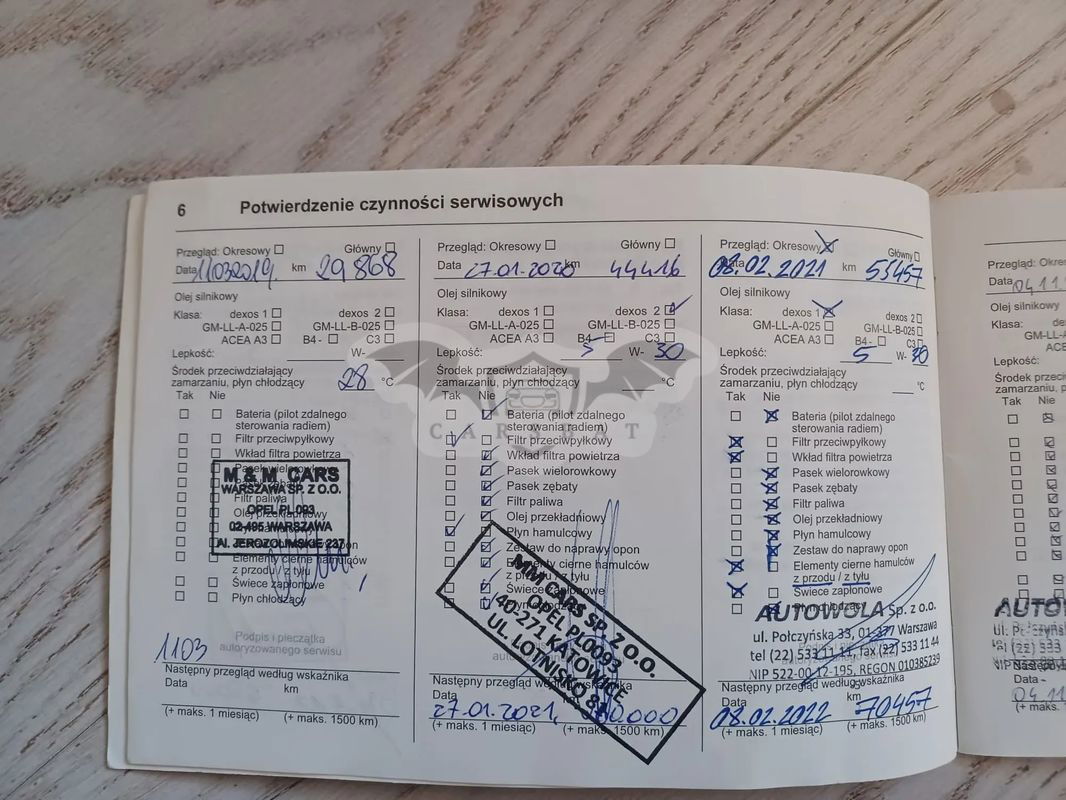 6 Potwierdzenie czynności serwisowych
Przegląd: Okresowy Główny
Data 11032019 km 29868
Olej silnikowy
Klasa: dexos 1 dexos 2
GM-LL-A-025 GM-LL-B-025
ACEA A3 B4 - C3
Lepkość: W-
Środek przeciwdziałający
zamarzaniu, płyn chłodzący 28 °C
Tak Nie
Bateria (pilot zdalnego
sterowania radiem)
Filtr przeciwpyłkowy
Wkład filtra powietrza
Pasek wielorowkowy
Filtr paliwa
Olej przekładniowy
Elementy cierne hamulców
z przodu / z tyłu
Świece zapłonowe
Płyn chłodzący
M & M CARS
WARSZAWA SP. Z O.O.
OPEL PL 093
02-495 WARSZAWA
Al. JEROZOLIMSKIE 237
1103
Podpis i pieczątka
autoryzowanego serwisu
Następny przegląd według wskaźnika
Data km
(+ maks. 1 miesiąc) (+ maks. 1500 km)
Przegląd: Okresowy Główny
Data 27.01.2020 km 44416
Olej silnikowy
Klasa: dexos 1 dexos 2
GM-LL-A-025 GM-LL-B-025
ACEA A3 B4 - C3
Lepkość: 5 W- 30
Środek przeciwdziałający
zamarzaniu, płyn chłodzący °C
Tak Nie
Bateria (pilot zdalnego
sterowania radiem)
CARSBOT
Filtr przeciwpyłkowy
Wkład filtra powietrza
Pasek wielorowkowy
Pasek zębaty
Filtr paliwa
Olej przekładniowy
Płyn hamulcowy
Zestaw do naprawy opon
Elementy cierne hamulców
z przodu / z tyłu
Świece zapłonowe
MM CARS SP. Z O.O.
OPEL PL0093
40-271 KATOWICE
UL. LOTNISKO
Następny przegląd według wskaźnika
Data
27.01.2021,
(+ maks. 1 miesiąc) (+ maks. 1500 km)
Przegląd: Okresowy Główny
Data 08.02.2021 km 53457
Olej silnikowy
Klasa: dexos 1 dexos 2
GM-LL-A-025 GM-LL-B-025
ACEA A3 B4 - C3
Lepkość: 5 W- 30
Środek przeciwdziałający
zamarzaniu, płyn chłodzący °C
Tak Nie
Bateria (pilot zdalnego
sterowania radiem)
Filtr przeciwpyłkowy
Wkład filtra powietrza
Pasek wielorowkowy
Pasek zębaty
Filtr paliwa
Olej przekładniowy
Płyn hamulcowy
Zestaw do naprawy opon
Elementy cierne hamulców
z przodu / z tyłu
Świece zapłonowe
Płyn chłodzący
AUTOWOLA Sp. z o.o.
ul. Połczyńska 33, 01-377 Warszawa
tel (22) 533 11 11, fax (22) 533 11 44
NIP 522-00-12-195, REGON 010385239
Następny przegląd według wskaźnika
Data km
08.02.2022 70457
(+ maks. 1 miesiąc) (+ maks. 1500 km)
Data 04.11
Olej silnikowy
Klasa:
Lepkość:
Tak Nie
AUTOW
Data
04.11
(+ maks.